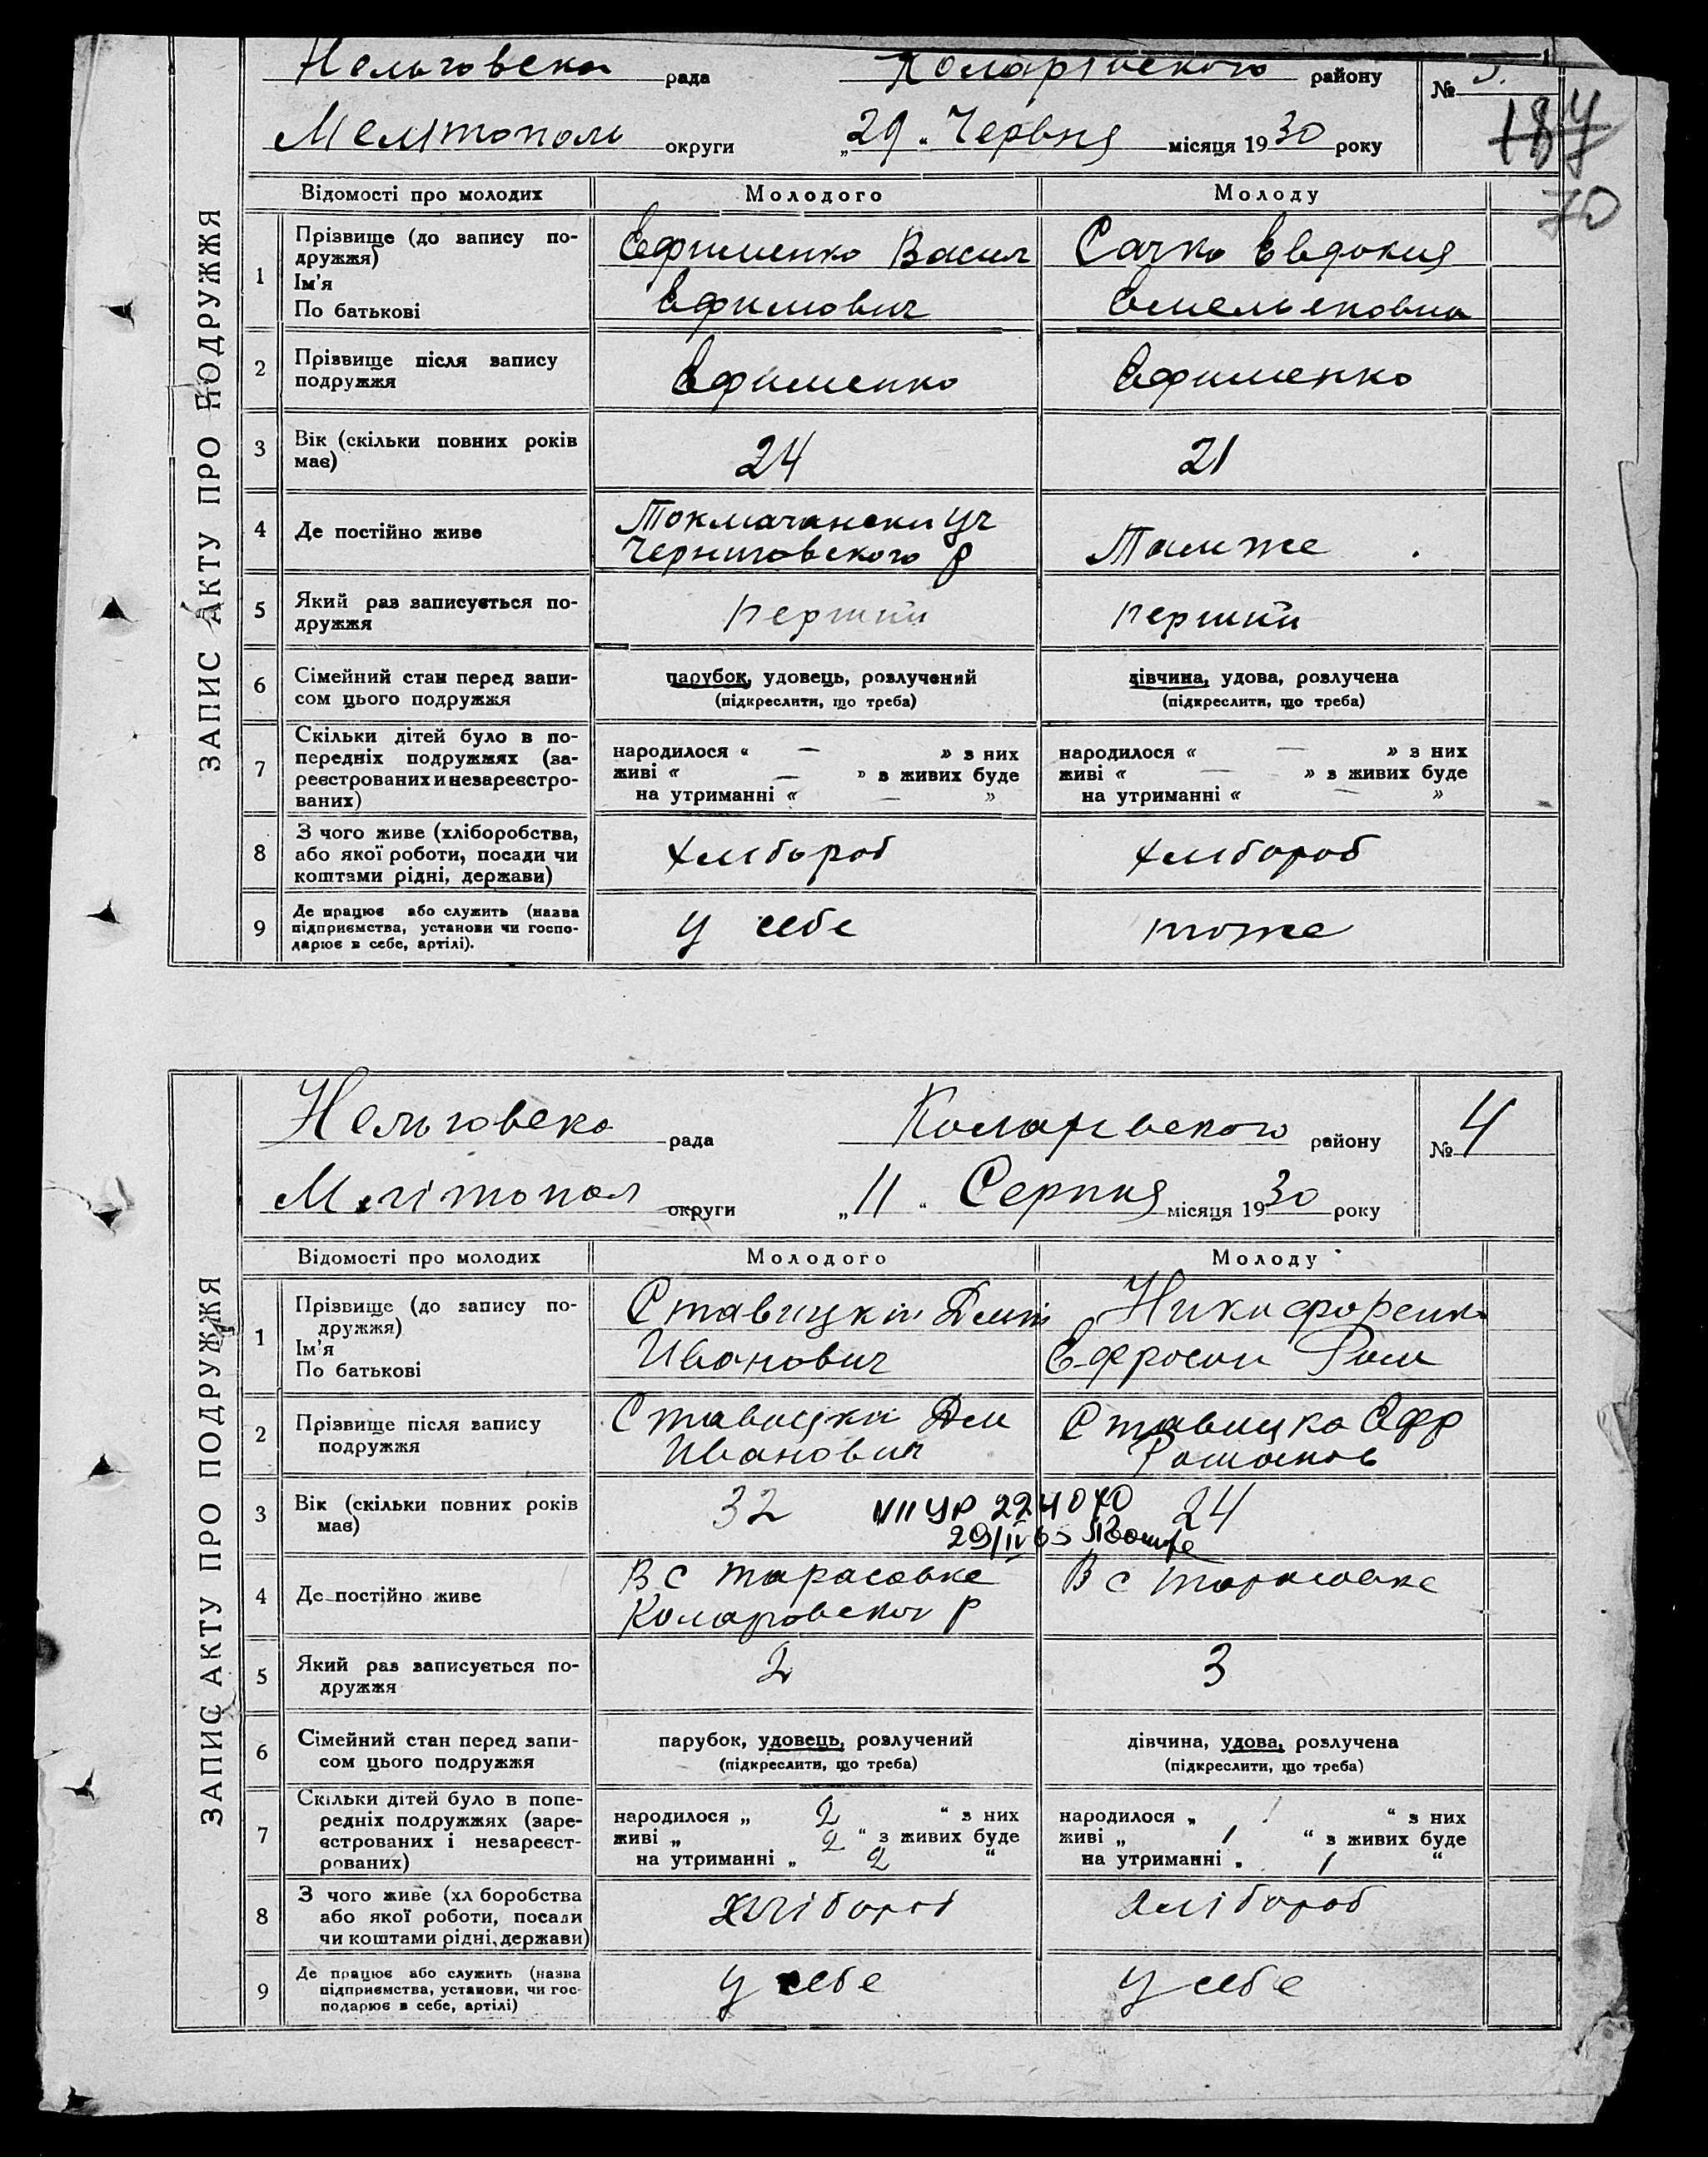 Нельговска рада Коларівского району №
Мелітополь округи „29“ Червня місяця 1930 року
187
70
ЗАПИС АКТУ ПРО ПОДРУЖЖЯ
Відомості про молодих Молодого Молоду
1 Прізвище (до запису по-
дружжя)
Ім'я
По батькові
Ефименко Васил
Ефимович
Сачко Евдокия
Емельяновна
2 Прізвище після запису
подружжя
Ефименко Ефименко
3 Вік (скільки повних років
має)
24 21
4 Де постійно живе
Токмачански уч
Черниговского р
Тамже
5 Який раз записується по-
дружжя
перший перший
6 Сімейний стан перед запи-
сом цього подружжя
парубок, удовець, розлучений
(підкреслити, що треба)
дівчина, удова, розлучена
(підкреслити, що треба)
7 Скільки дітей було в по-
передніх подружжях (за-
реєстрованих и незареєстро-
ваних)
народилося « — » з них
живі « — » з живих буде
на утриманні « — »
народилося « — » з них
живі « — » з живих буде
на утриманні « — »
8 З чого живе (хліборобства,
або якої роботи, посади чи
коштами рідні, держави)
хлибороб хлибороб
9 Де працює або служить (назва
підприємства, установи чи госпо-
дарює в себе, артілі).
у себе тоже
Нельговско рада Коларевского району № 4
Мелітопол округи „11“ Серпня місяця 1930 року
ЗАПИС АКТУ ПРО ПОДРУЖЖЯ
Відомості про молодих Молодого Молоду
1 Прізвище (до запису по-
дружжя)
Ім'я
По батькові
Ставицкий Дмит
Иванович
Никифоренко
Ефросин Ром
2 Прізвище після запису
подружжя
Ставицки Дм
Иванович
Ставицко Ефр
Романов
3 Вік (скільки повних років
має)
32 24
VII УР 224070
29/IV 65
4 Де постійно живе
В с Тарасовке
Коларовског р
В с Тарасовке
5 Який раз записується по-
дружжя
2 3
6 Сімейний стан перед запи-
сом цього подружжя
парубок, удовець, розлучений
(підкреслити, що треба)
дівчина, удова, розлучена
(підкреслити, що треба)
7 Скільки дітей було в попе-
редніх подружжях (заре-
єстрованих і незареєст-
рованих)
народилося „ 2 “ з них
живі „ 2 “ з живих буде
на утриманні „ 2 “
народилося „ 1 “ з них
живі „ 1 “ з живих буде
на утриманні „ 1 “
8 З чого живе (хл боробства
або якої роботи, посади
чи коштами рідні, держави)
хлібороб хлібороб
9 Де працює або служить (назва
підприємства, установи, чи гос-
подарює в себе, артілі)
у себе у себе